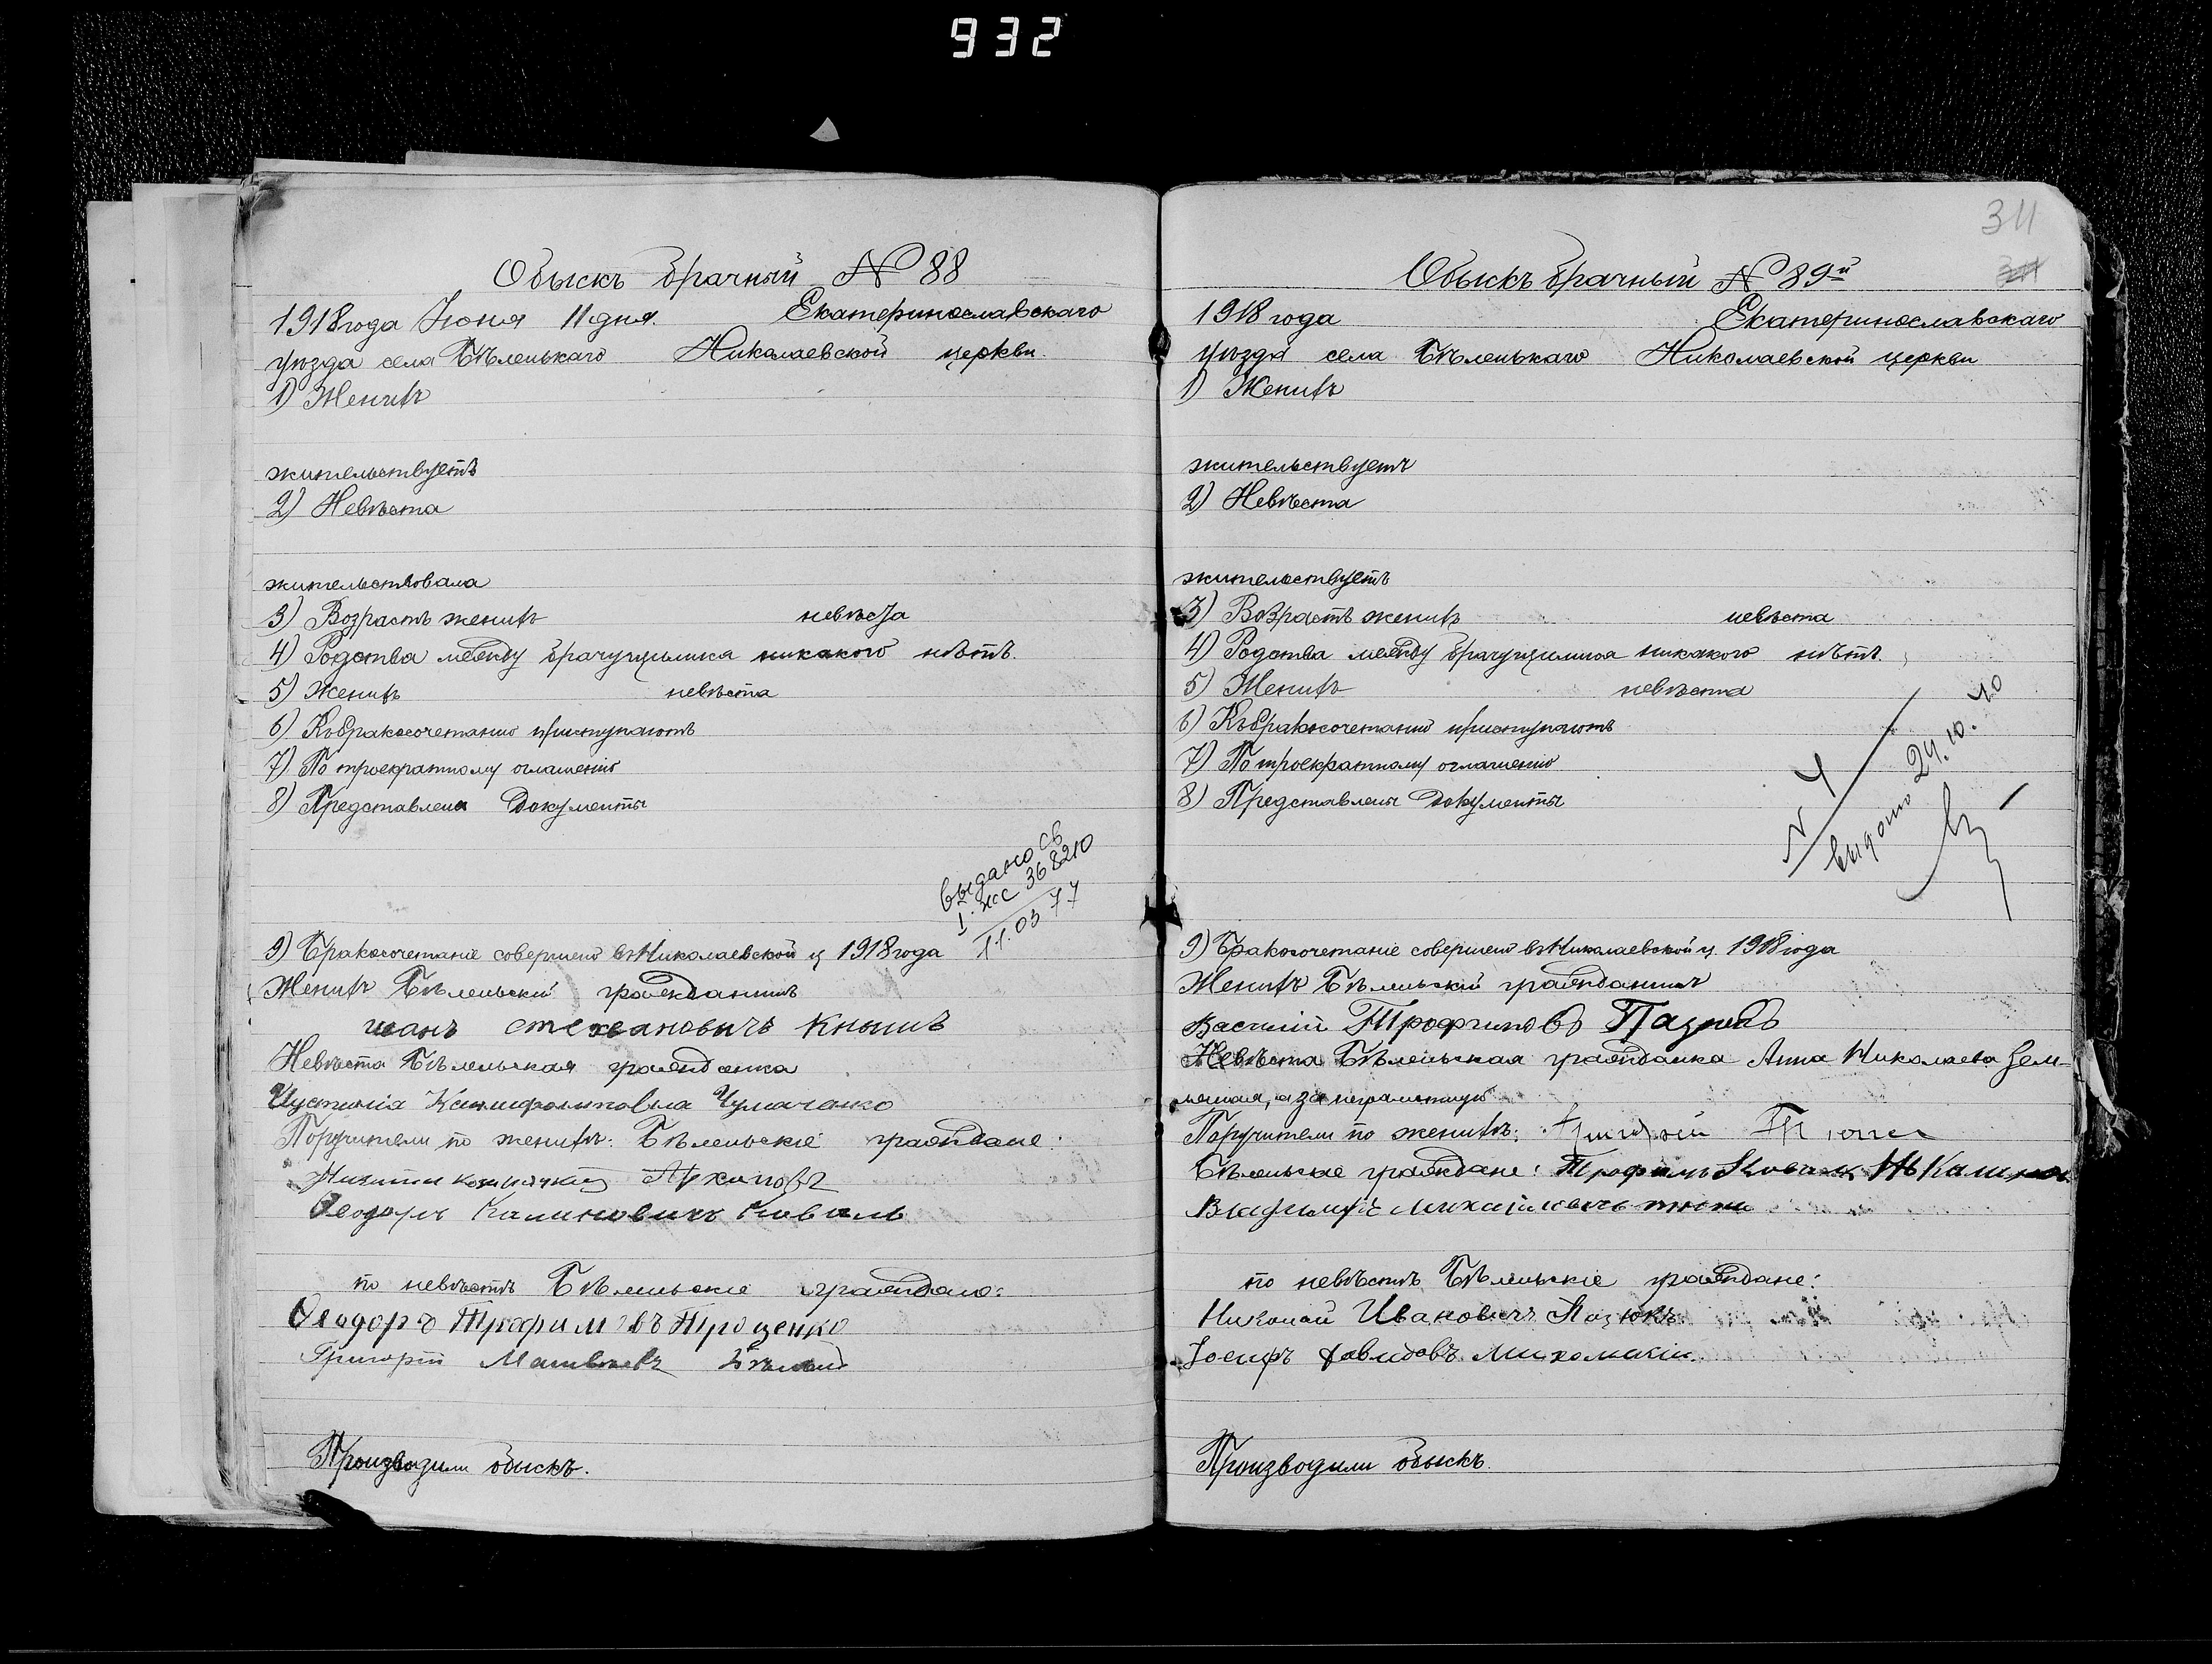 932
Обыскъ брачный № 88
1918 года Іюня 11 дня. Екатеринославскаго
уѣзда села Бѣленькаго Николаевской церкви.
1) Женихъ
жительствуетъ
2) Невѣста
жительствовала
3) Возрастъ женихъ невѣста
4) Родства между брачущимися никакого нѣтъ.
5) Женихъ невѣста
6) Къ бракосочетанію приступаютъ
7) По троекратному оглашенію
8) Представлена документы
выдано св
I. жс 368210
11.03 77
9) Бракосочетаніе совершено въ Николаевской ц 1918 года
Женихъ Бѣленьскій гражданинъ
иванъ стехвановичъ Кнышъ
Невѣста Бѣленьская гражданка
Иустинія Чумаченко
Поручители по женихѣ: Бѣленьскіе граждане:
Архиповъ
Ѳеодоръ Калиновичъ Коваль
по невѣстѣ Бѣленьскіе граждане:
Ѳеодоръ Трофимовъ Троценко
Григорій Матвѣевъ
Производили обыскъ.
311
Обыскъ брачный № 89й
1918 года Екатеринославскаго
уѣзда села Бѣленькаго Николаевской церкви
1) Женихъ
жительствуетъ
2) Невѣста
жительствуетъ
3) Возрастъ женихъ невѣста
4) Родства между брачущимися никакого нѣтъ.
5) Женихъ невѣста
6) Къ бракосочетанію приступаютъ
7) По троекратному оглашенію
8) Представлены документы
N 4
выдано 24.10.40
9) Бракосочетаніе совершено въ Николаевской ц. 1918 года
Женихъ Бѣленьскій гражданинъ
Василій Трофимовъ
Невѣста Бѣленьская гражданка Анна Николаева Зем-
ляная, а за неграмотную
Поручители по женихѣ:
Бѣленьскіе граждане: Трофимъ
Владимиръ Михайловичъ
по невѣстѣ Бѣленьскіе граждане:
Николай Ивановичъ Пазюкъ
Іосифъ Давидовъ
Производили обыскъ.